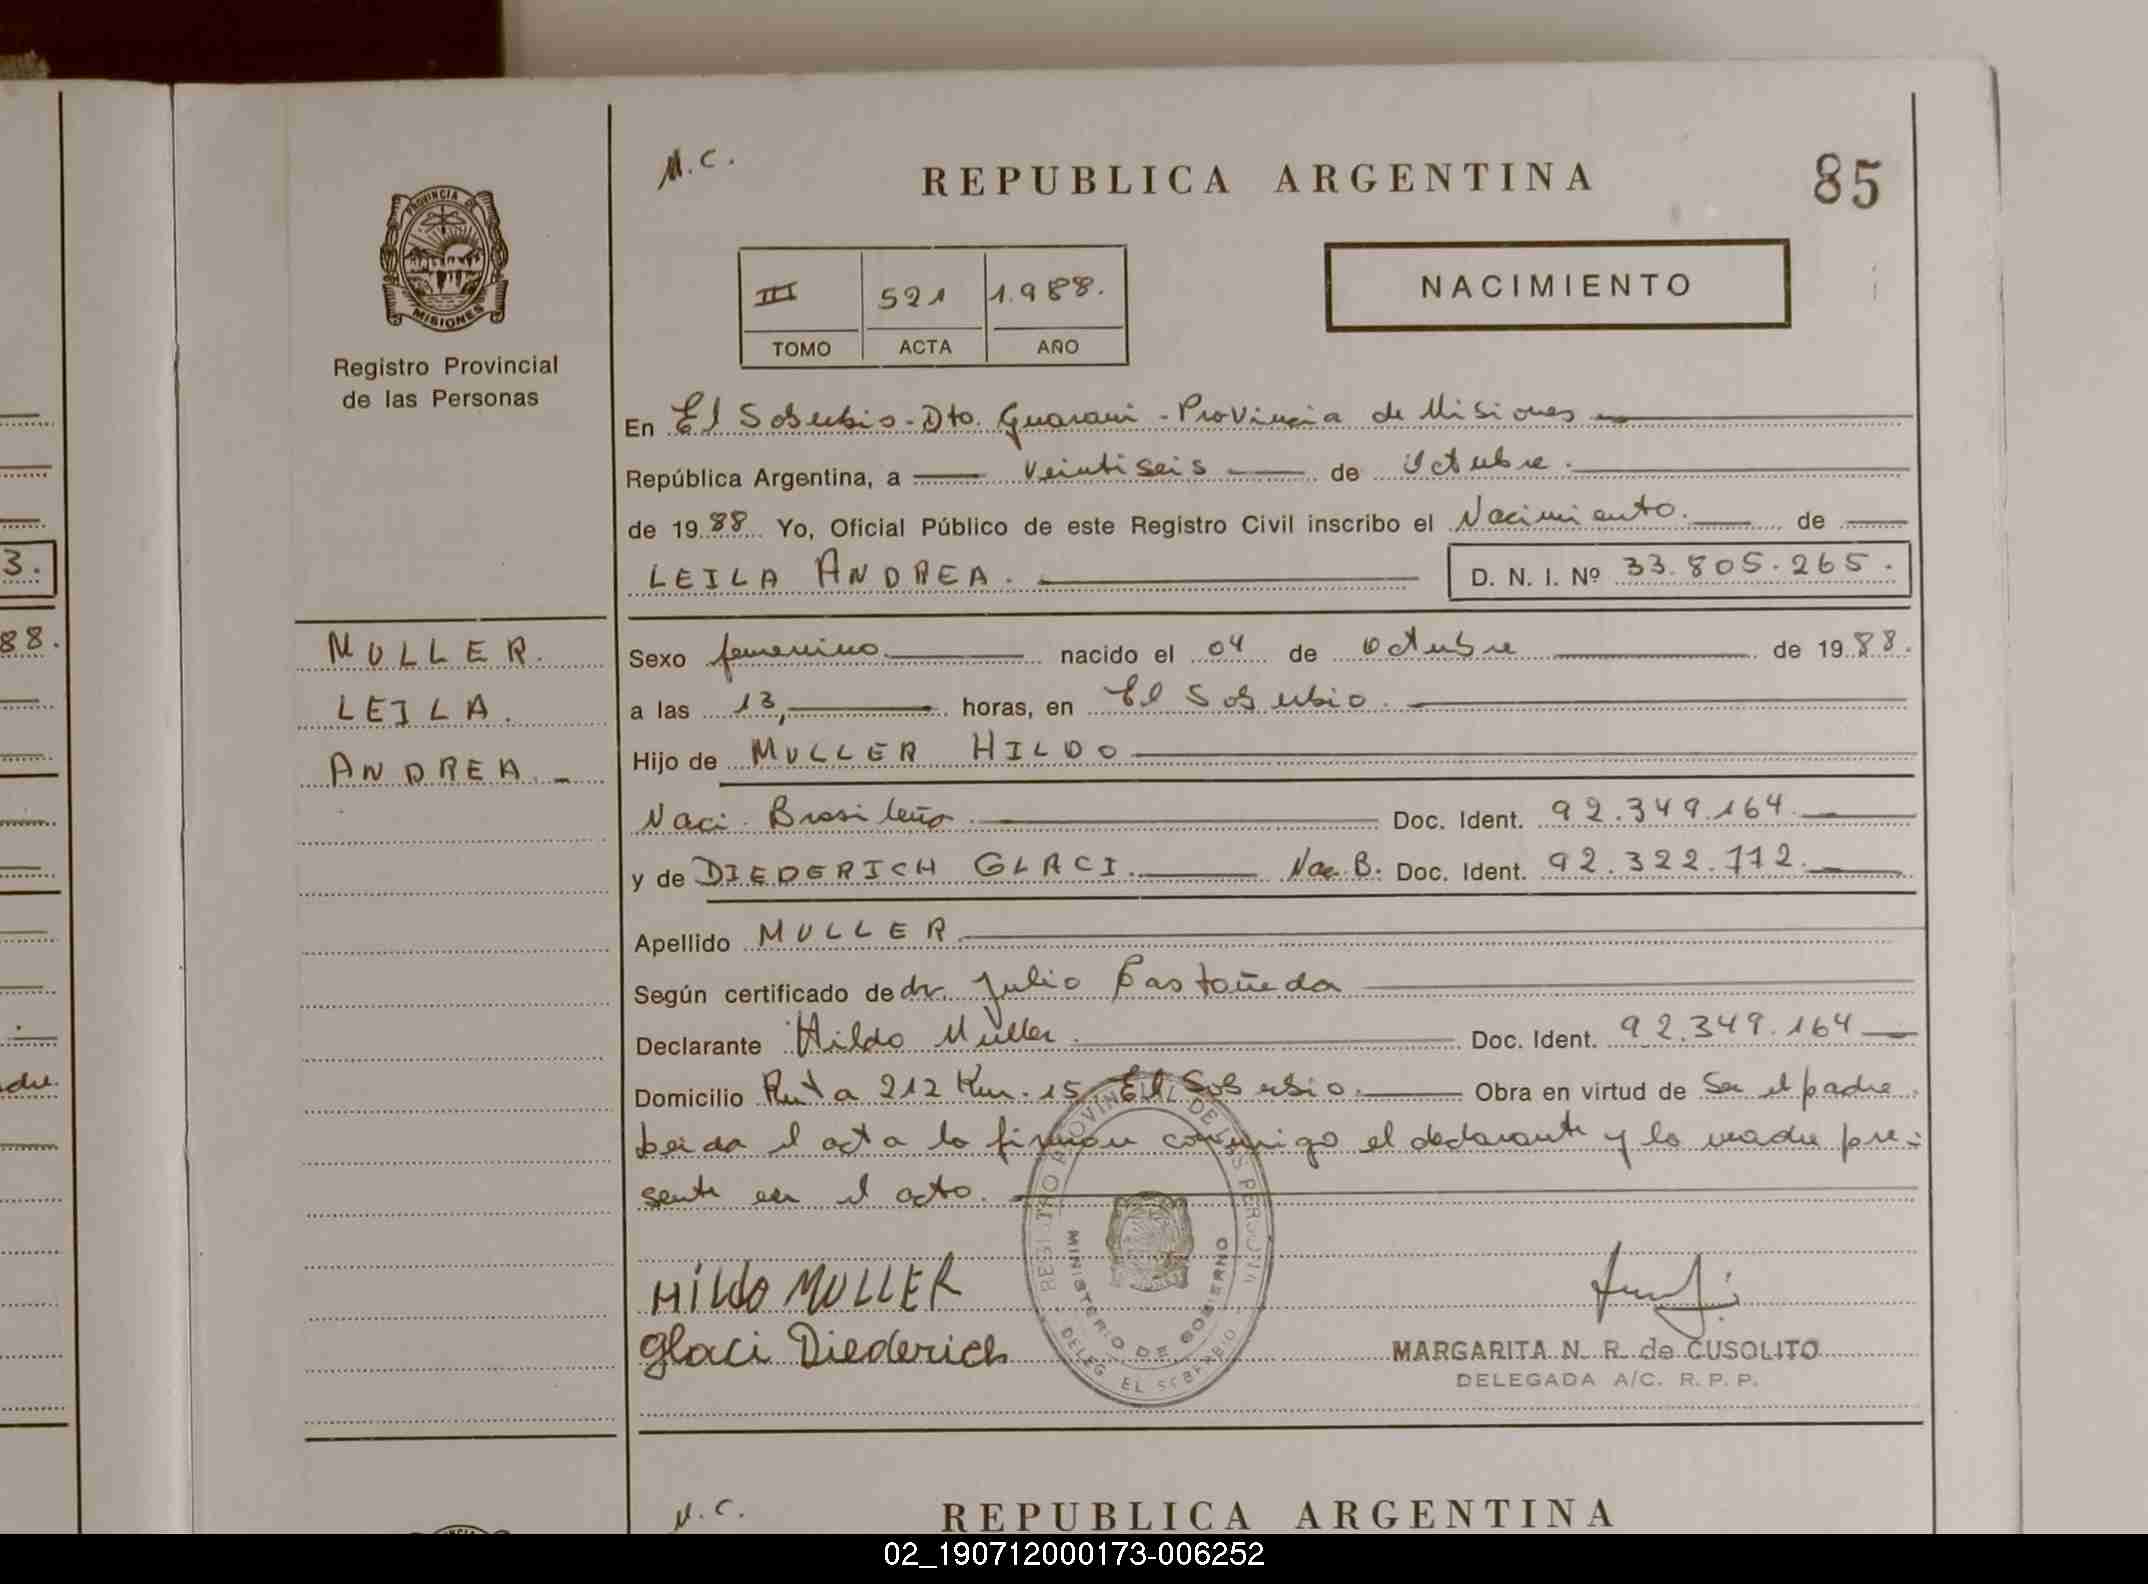 M.C.
REPUBLICA ARGENTINA
85
PROVINCIA DE
MISIONES
Registro Provincial
de las Personas
III 521 1.988.
TOMO ACTA AÑO
NACIMIENTO
En El Soberbio - Dto. Guarani - Provincia de Misiones
República Argentina, a veintiseis de Octubre.
de 1988 Yo, Oficial Público de este Registro Civil inscribo el Nacimiento. de
LEILA ANDREA. D. N. I. Nº 33.805.265.
MULLER.
LEILA.
ANDREA.-
Sexo femenino nacido el 04 de octubre de 1988.
a las 13, horas, en El Soberbio.
Hijo de MULLER HILDO
Naci. Brasileña. Doc. Ident. 92.349.164.
y de DIEDERICH GLACI. Nac. B. Doc. Ident. 92.322.112.
Apellido MULLER
Según certificado de dr. Julio Castañeda
Declarante Hildo Muller. Doc. Ident. 92.349.164
Domicilio Ruta 212 Km. 15 El Soberbio. Obra en virtud de Ser el padre.
Leida el acta la firman conmigo el declarante y la madre pre-
sente en el acto.
HILDO MULLER
Glaci Diederich
REGISTRO PROVINCIAL DE LAS PERSONAS
MINISTERIO DE GOBIERNO
DELEG. EL SOBERBIO
MARGARITA N. R. de CUSOLITO
DELEGADA A/C. R. P. P.
3.
88.
adre.
N.C.
REPUBLICA ARGENTINA
02_190712000173-006252